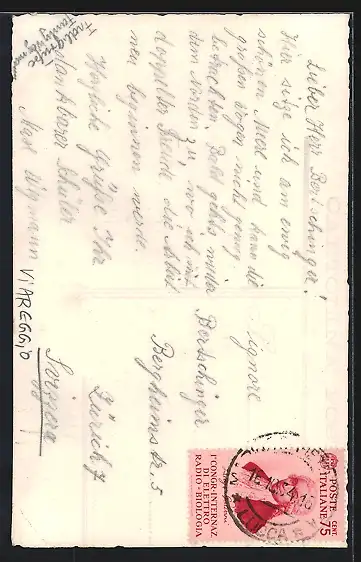 Lieber Herr Bertschinger!
Hier sitze ich am ewig
schönen Meer und kann die
großen Wogen nicht genug
betrachten. Bald gehts wieder
dem Norden zu, wo ich mit
doppelter Freude die Arbeit
neu beginnen werde.
Herzliche Grüße Ihr
dankbarer Schüler
Max Wigmann
VIAREGGIO
Signore
Bertschinger
Bergheimstr. 5
Zürich 7
Svizzera
POSTE ITALIANE
CENT. 75
I° CONGR·INTERNAZ
DI ELETTRO
RADIO·BIOLOGIA